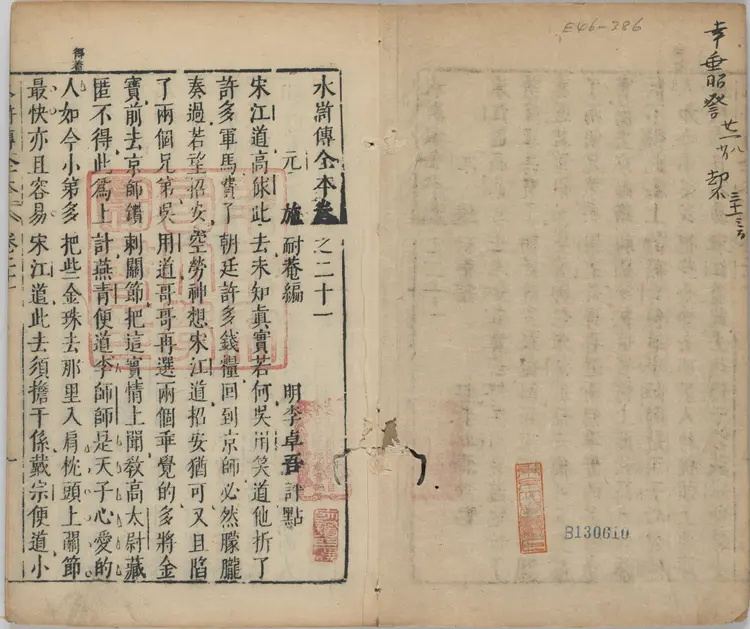 水滸傳全本卷之二十一
元 施耐菴編 明李卓吾評點
宋江道高俅此去未知眞實若何吳用笑道他折了
許多軍馬費了朝廷許多錢糧回到京師必然朦朧
奏過若望招安空勞神想宋江道招安猶可又且陷
了兩個兄弟吳用道哥哥再選兩個乖覺的多將金
寶前去京師鑽刺關節把這實情上聞教高太尉藏
匿不得此爲上計燕青便道李師師是天子心愛的
人如今小弟多把些金珠去那里入肩枕頭上關節
最快亦且容易宋江道此去須擔干係戴宗便道小
得着
水滸傳全本
卷之二十一
E46-286
B130610